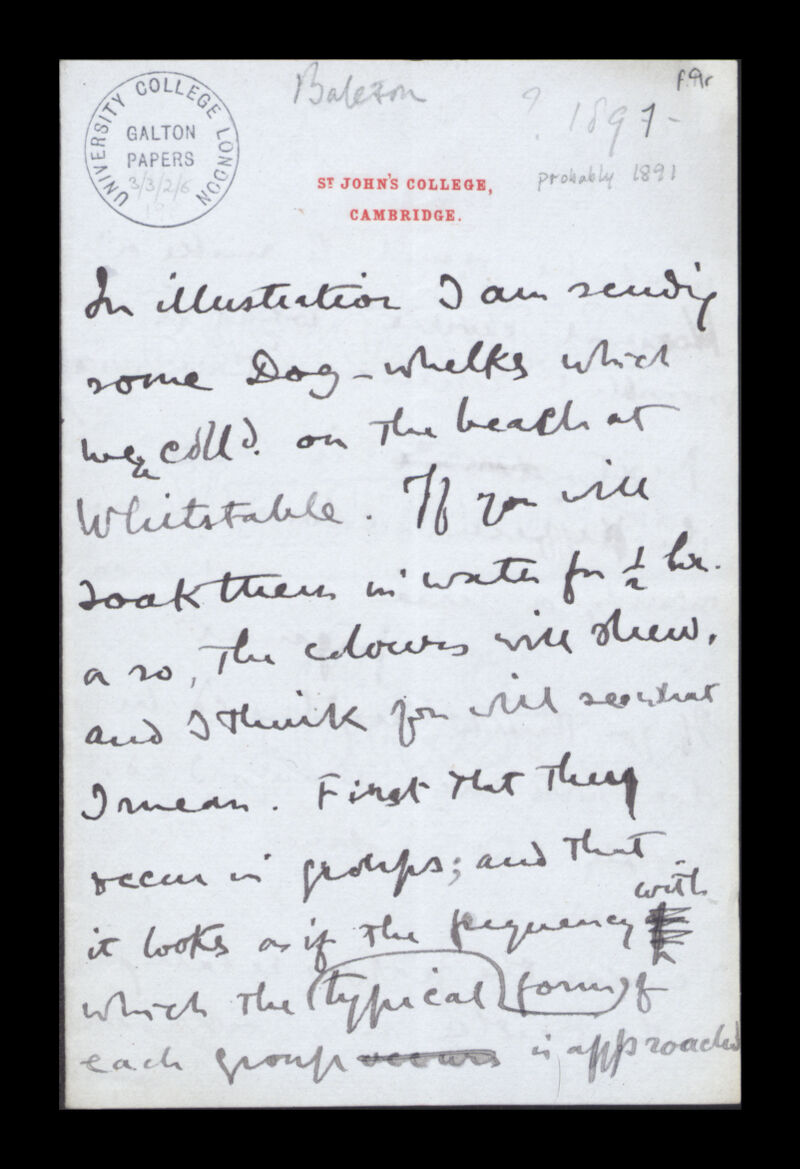 Bateson
f.9r
? 1897-
probably 1891
UNIVERSITY COLLEGE LONDON
GALTON
PAPERS
3/3/2/6
ST JOHN'S COLLEGE,
CAMBRIDGE.
In illustration I am sending
some Dog-whelks which
we colld. on the beach at
Whitstable. If you will
soak them in water for ½ hr.
or so, the colours will shew,
and I think you will see what
I mean. First that they
occur in groups; and that
it looks as if the frequency with
which the typical form of
each group occurs is approached